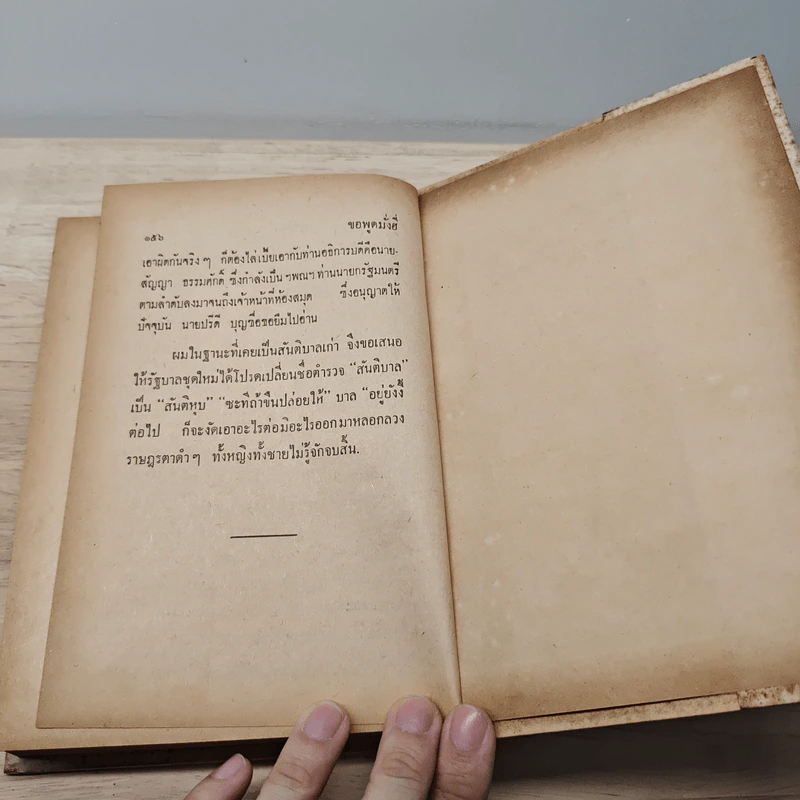 ๑๕๖
ขอพูดมั่งซี
เอาผิดกันจริง ๆ ก็ต้องไล่เบี้ยเอากับท่านอธิการบดีคือนาย-
สัญญา ธรรมศักดิ์ ซึ่งกำลังเป็น ฯพณฯ ท่านนายกรัฐมนตรี
ตามลำดับลงมาจนถึงเจ้าหน้าที่ห้องสมุด ซึ่งอนุญาตให้
ปัจจุบัน นายปรีดี บุญซื่อขอยืมไปอ่าน
ผมในฐานะที่เคยเป็นสันติบาลเก่า จึงขอเสนอ
ให้รัฐบาลชุดใหม่ได้โปรดเปลี่ยนชื่อตำรวจ “สันติบาล”
เป็น “สันติหุบ” “ซะทีถ้าขืนปล่อยให้” บาล “อยู่ยังงี้
ต่อไป ก็จะงัดเอาอะไรต่อมิอะไรออกมาหลอกลวง
ราษฎรตาดำ ๆ ทั้งหญิงทั้งชายไม่รู้จักจบสิ้น.